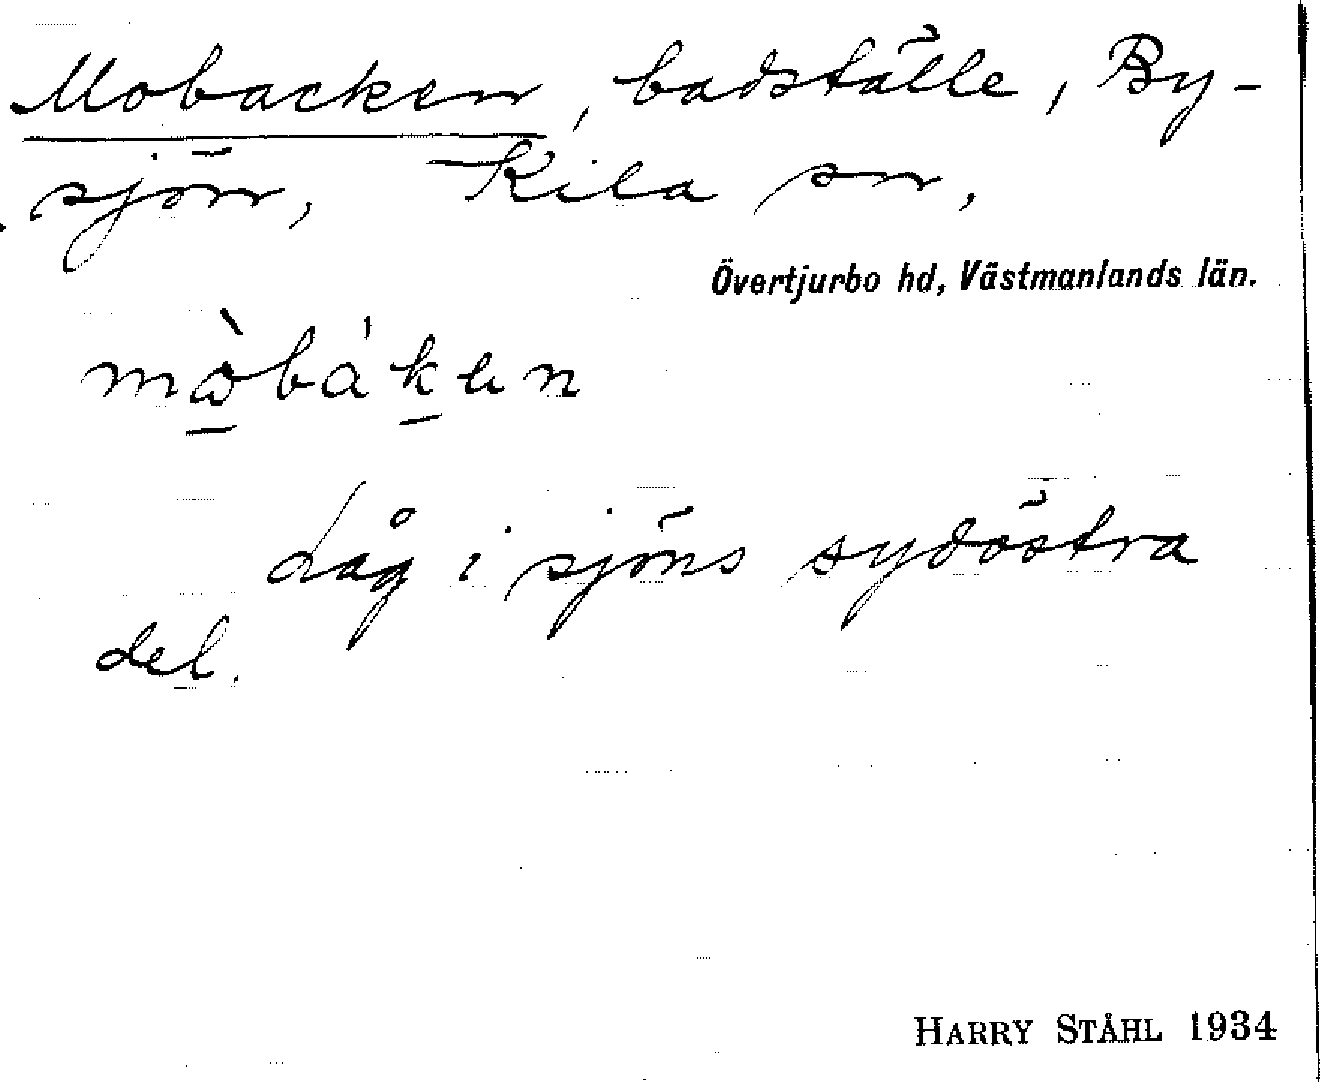 Mobacken, badställe, By-
sjön, Kila sn,
Övertjurbo hd, Västmanlands län.
mɷ̀bákɐn
Låg i sjöns sydöstra
del.
HARRY STÅHL 1934